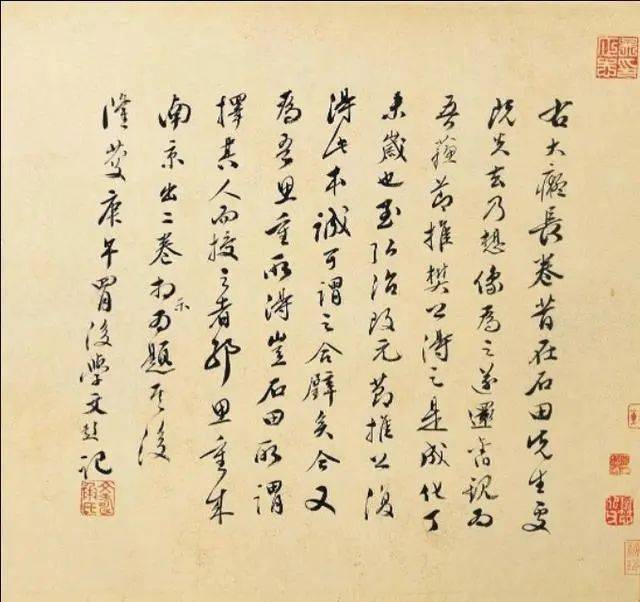 右大癡長卷昔在石田先生處
既失去乃想像為之遂還舊觀為
吾蘇節推樊公得之是成化丁
未歲也至弘治改元節推公復
得此本誠可謂之合璧矣今又
為吾思重所得豈石田所謂
擇其人而授之者耶思重來
南京出二卷相示為題其後
隆慶庚午四月後學文彭記